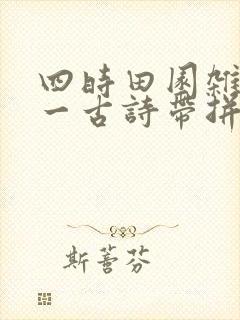 四時田園雜
一古詩帶拼
斯蕾芬